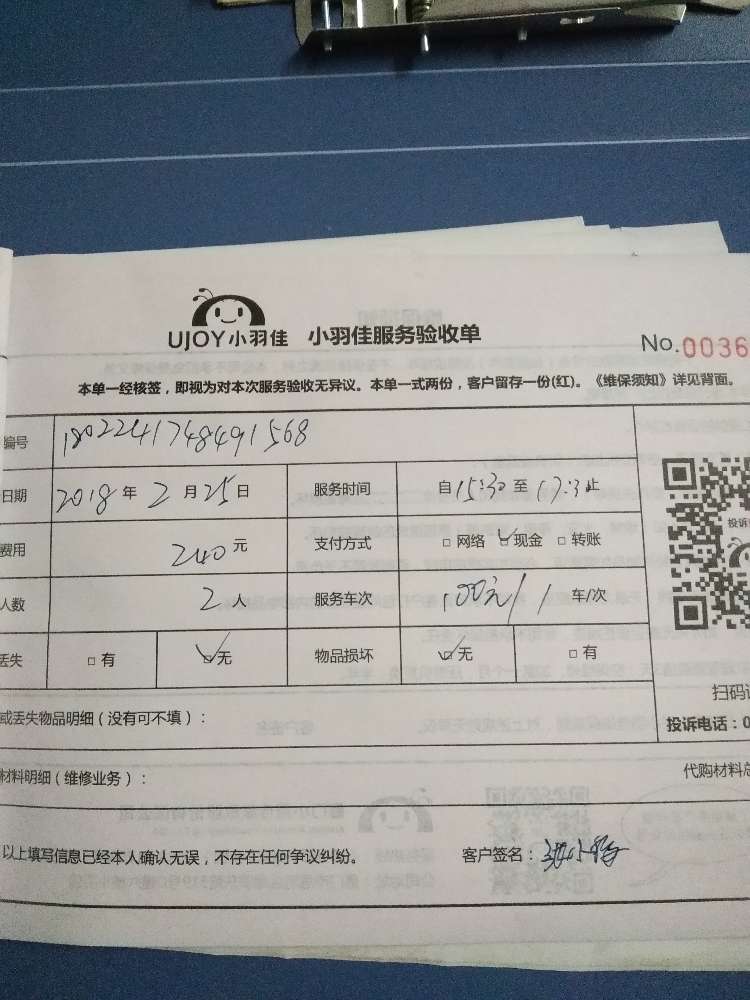 UJOY小羽佳 小羽佳服务验收单
No.0036
本单一经核签，即视为对本次服务验收无异议。本单一式两份，客户留存一份(红)。《维保须知》详见背面。
编号 1802241748491568
日期 2018年2月25日 服务时间 自15:30至17:30止
费用 240元 支付方式 □网络 ☑现金 □转账
人数 2人 服务车次 1 车/次
丢失 □有 ☑无 物品损坏 ☑无 □有
投诉
扫码
或丢失物品明细（没有可不填）：
投诉电话：0
材料明细（维修业务）：
代购材料总
以上填写信息已经本人确认无误，不存在任何争议纠纷。 客户签名：